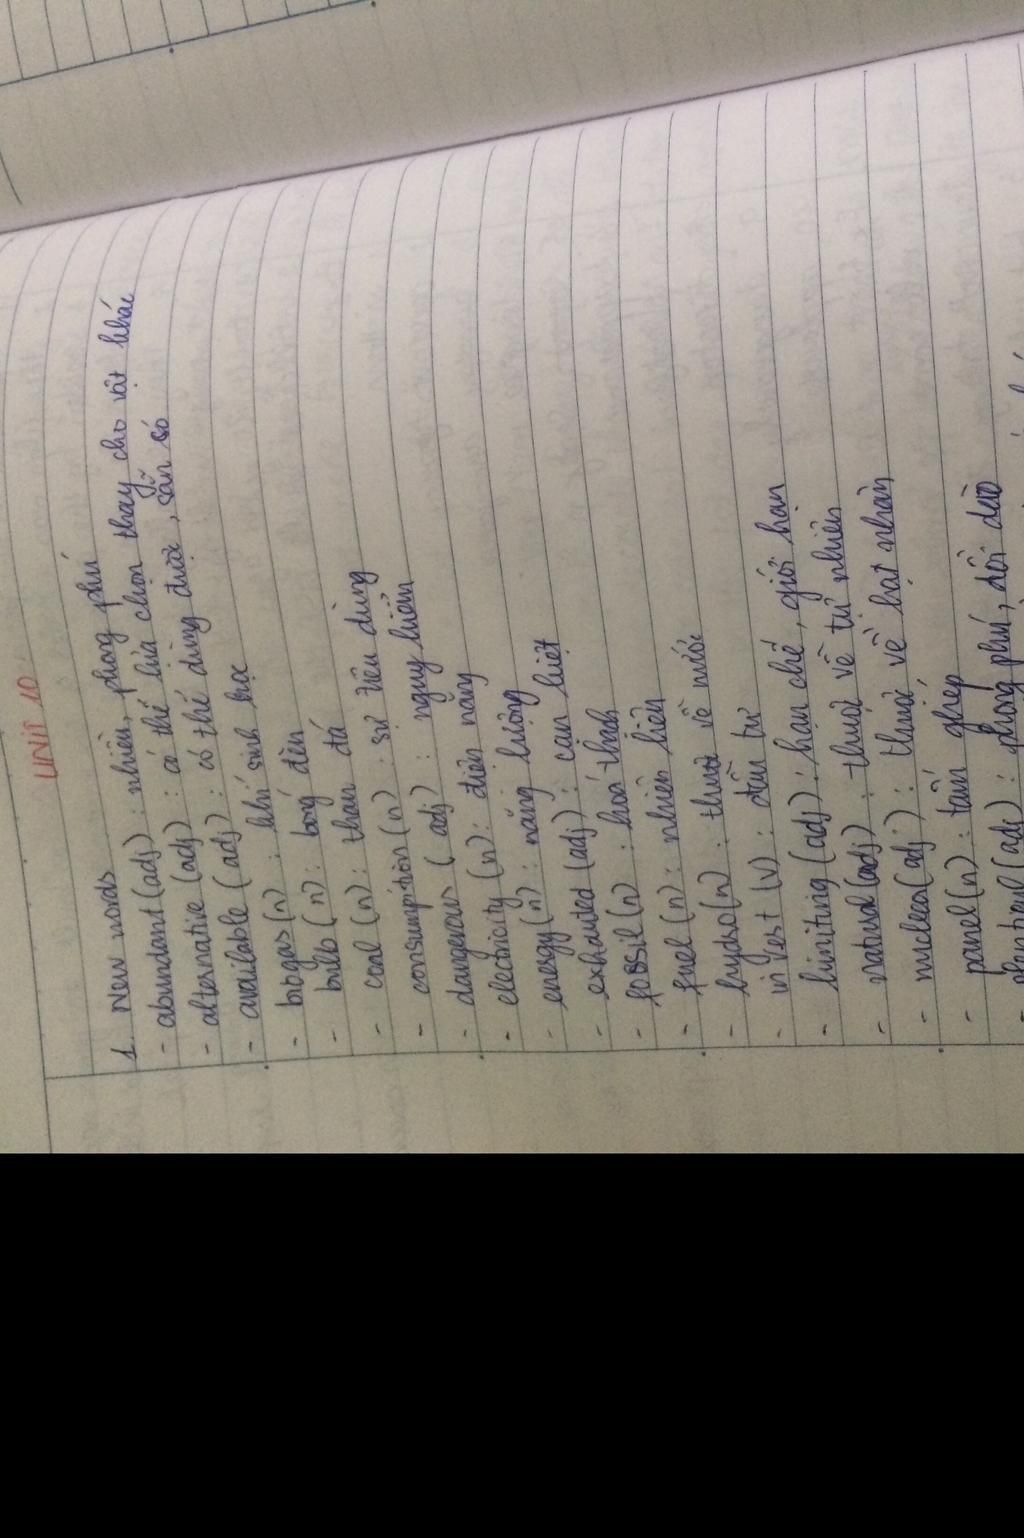 UNIT 10:
1. New words
- abundant (adj) : nhiều, phong phú
- alternative (adj) : có thể lựa chọn thay cho vật khác
- available (adj) : có thể dùng được, sẵn có
- biogas (n) : khí sinh học
- bulb (n) : bóng đèn
- coal (n) : than đá
- consumption (n) : sự tiêu dùng
- dangerous (adj) : nguy hiểm
- electricity (n) : điện năng
- energy (n) : năng lượng
- exhausted (adj) : cạn kiệt
- fossil (n) : hoá thạch
- fuel (n) : nhiên liệu
- hydro (n) : thuộc về nước
- invest (v) : đầu tư
- limiting (adj) : hạn chế, giới hạn
- natural (adj) : thuộc về tự nhiên
- nuclear (adj) : thuộc về hạt nhân
- panel (n) : tấm ghép
- plentiful (adj) : phong phú, dồi dào